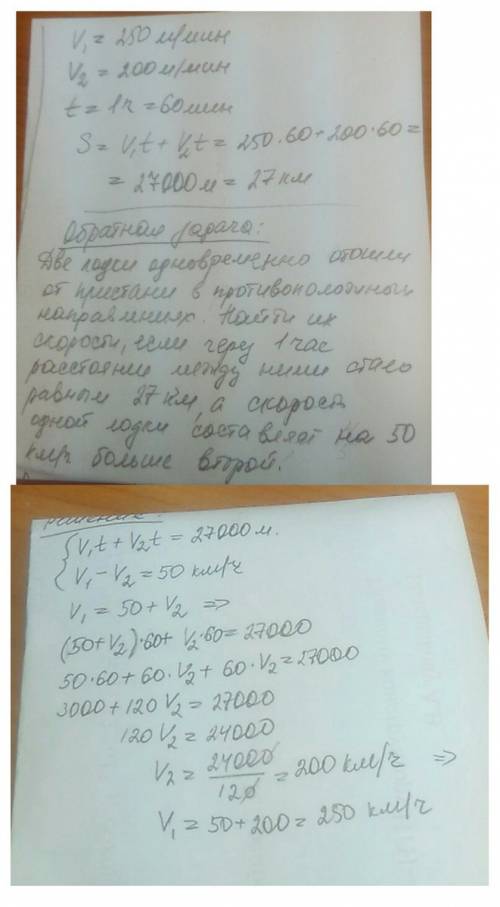 V₁ = 250 м/мин
V₂ = 200 м/мин
t = 1ч = 60мин
S = V₁t + V₂t = 250·60 + 200·60 =
= 27000м = 27 км
Обратная задача:
Две лодки одновременно отошли
от пристани в противоположных
направлениях. Найти их
скорости, если через 1 час
расстояние между ними стало
равным 27 км, а скорость
одной лодки составляет на 50
км/ч больше второй.
Решение:
V₁t + V₂t = 27000 м.
V₁ - V₂ = 50 км/ч
V₁ = 50 + V₂ =>
(50+V₂)·60 + V₂·60 = 27000
50·60 + 60·V₂ + 60·V₂ = 27000
3000 + 120 V₂ = 27000
120 V₂ = 24000
V₂ = 24000/120 = 200 км/ч =>
V₁ = 50 + 200 = 250 км/ч